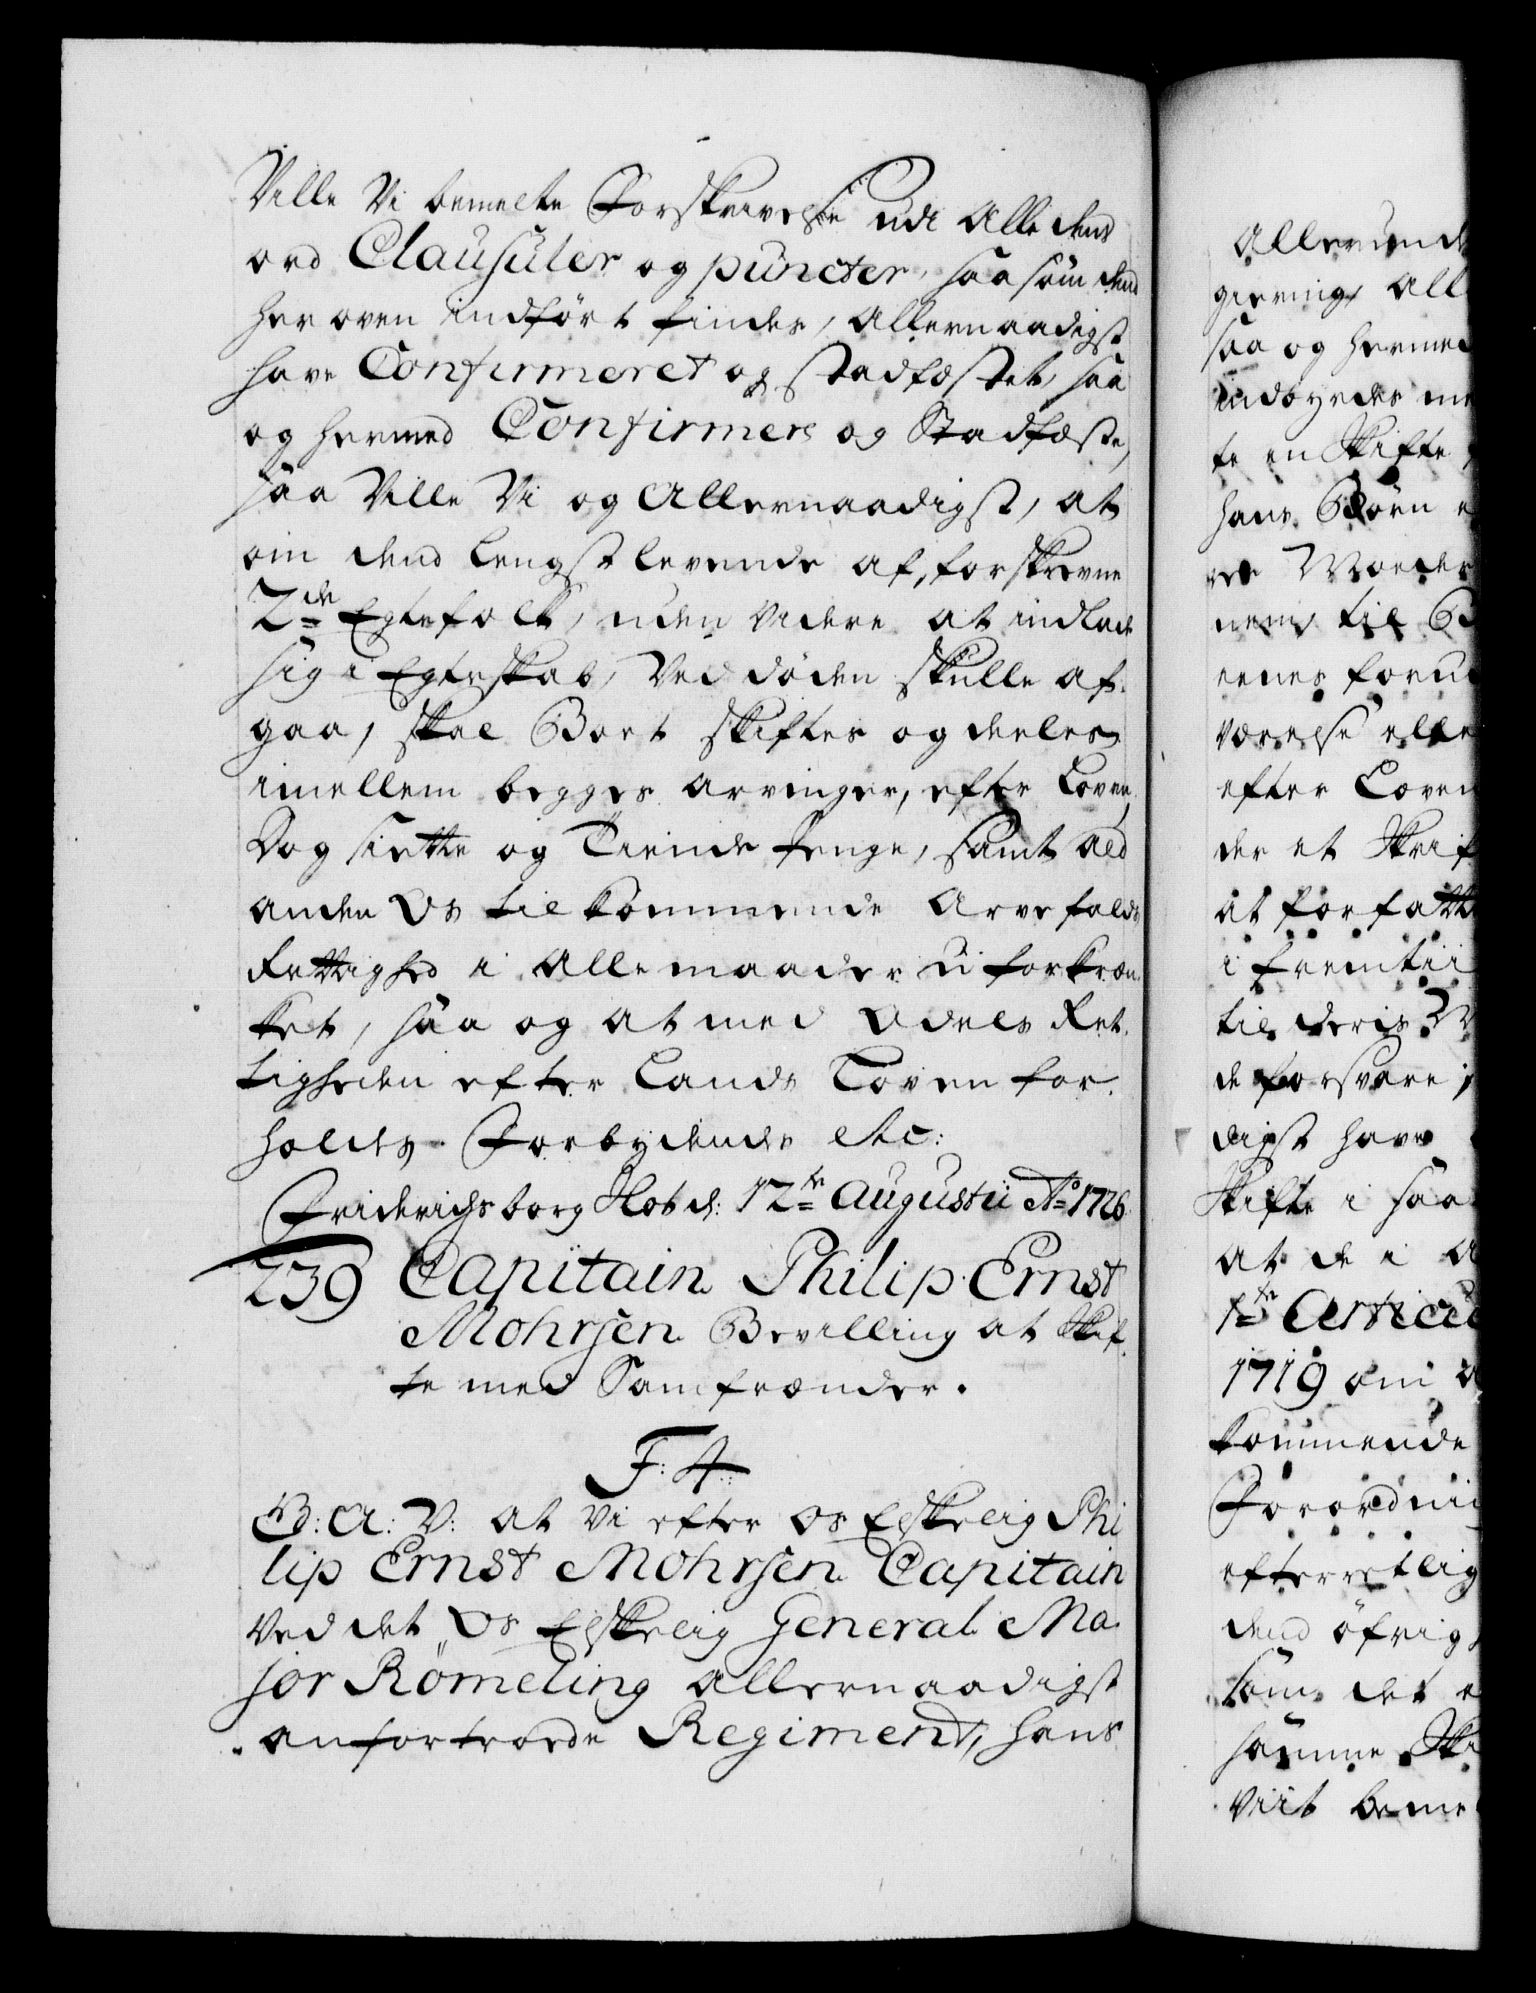 Ville Vi bemelte Forskrivelse udi Alle dens
ord Clausuler og puncter, saasom dend
her oven indført findes, Allernaadigst
have Confirmeret og stadfæstet, saa
og hermed Confirmere og Stadfæste,
saa Ville Vi og Allernaadigst, at
om dend Lengst levende af forskrevne
2de Egtefolk, uden videre at indlade
sig i Egteskab, Ved døden skulle af-
gaa, skal Boet skiftes og deeles
imellem begges arvinger, efter Loven,
Dog siette og Tiende Penge, samt ald
anden Os tilkommende Arvefalds
Rettighed i Alle maader uforkræn-
ket, saa og at med Odels Ret-
tigheden efter Lands Loven for-
holdes. Forbydendes etc:
Friderichsborg Slot d: 12te Augustii Ao 1726.
239 Capitain Philip Ernst
Mohrsen Bevilling at Skif-
te med Samfrænder.
F: 4:
G: A: V: at Vi efter Os Elskelig Phi
lip Ernst Mohrsen Capitain
Ved det Os Elskelig General Ma-
jor Römeling allernaadigst
anfortroede Regiment, hans
Allerunde
giering, All
saa og hermed
indbyrdes me
te en Skifte
hans Børn
Moeder
nem, til B
eenes foru
værelse elle
efter Loven
der et Skrif
at forfatte
i fremtii
til deris M
de forsvare
digst have
Skifte i saa
at de i A
1te Articul
1719 om a
kommende
Forordni
efterretlig
dend øfrig
som det e
samme Ski
Viit beme